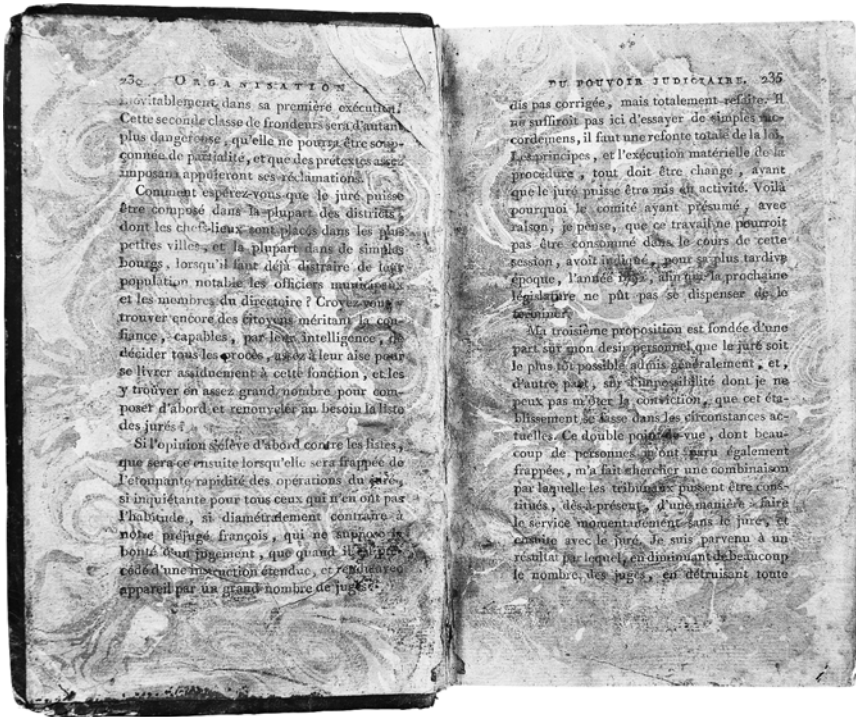 230 ORGANISATION
inévitablement dans sa première exécution.
Cette seconde classe de frondeurs sera d'autant
plus dangereuse, qu'elle ne pourra être soup-
çonnée de partialité, et que des prétextes assez
imposans appuieront ses réclamations.
Comment espérez-vous que le juré puisse
être composé dans la plupart des districts,
dont les chefs-lieux sont placés dans les plus
petites villes, et la plupart dans de simples
bourgs, lorsqu'il faut déjà distraire de leur
population notable les officiers municipaux
et les membres du directoire ? Croyez-vous y
trouver encore des citoyens méritant la con-
fiance, capables, par leur intelligence, de
décider tous les procès, assez à leur aise pour
se livrer assiduement à cette fonction, et les
y trouver en assez grand nombre pour com-
poser d'abord et renouveler au besoin la liste
des jurés ?
Si l'opinion s'élève d'abord contre les listes,
que sera-ce ensuite lorsqu'elle sera frappée de
l'étonnante rapidité des opérations du juré,
si inquiétante pour tous ceux qui n'en ont pas
l'habitude, si diamétralement contraire à
notre préjugé françois, qui ne suppose la
bonté d'un jugement, que quand il est pré-
cédé d'une instruction étendue, et rendu avec
appareil par un grand nombre de juges ?
DU POUVOIR JUDICIAIRE. 235
dis pas corrigée, mais totalement refaite. Il
ne suffiroit pas ici d'essayer de simples rac-
cordemens, il faut une refonte totale de la loi.
Les principes, et l'exécution matérielle de la
procédure, tout doit être changé, avant
que le juré puisse être mis en activité. Voilà
pourquoi le comité ayant présumé, avec
raison, je pense, que ce travail ne pourroit
pas être consommé dans le cours de cette
session, avoit indiqué, pour sa plus tardive
époque, l'année 1792, afin que la prochaine
législature ne pût pas se dispenser de le
terminer.
Ma troisième proposition est fondée d'une
part sur mon desir personnel que le juré soit
le plus tôt possible admis généralement, et,
d'autre part, sur l'impossibilité dont je ne
peux pas m'ôter la conviction, que cet éta-
blissement se fasse dans les circonstances ac-
tuelles. Ce double point de vue, dont beau-
coup de personnes m'ont paru également
frappées, m'a fait chercher une combinaison
par laquelle les tribunaux pussent être cons-
titués, dès-à-présent, d'une manière à faire
le service momentanément sans le juré, et
ensuite avec le juré. Je suis parvenu à un
résultat par lequel, en diminuant de beaucoup
le nombre des juges, en détruisant toute